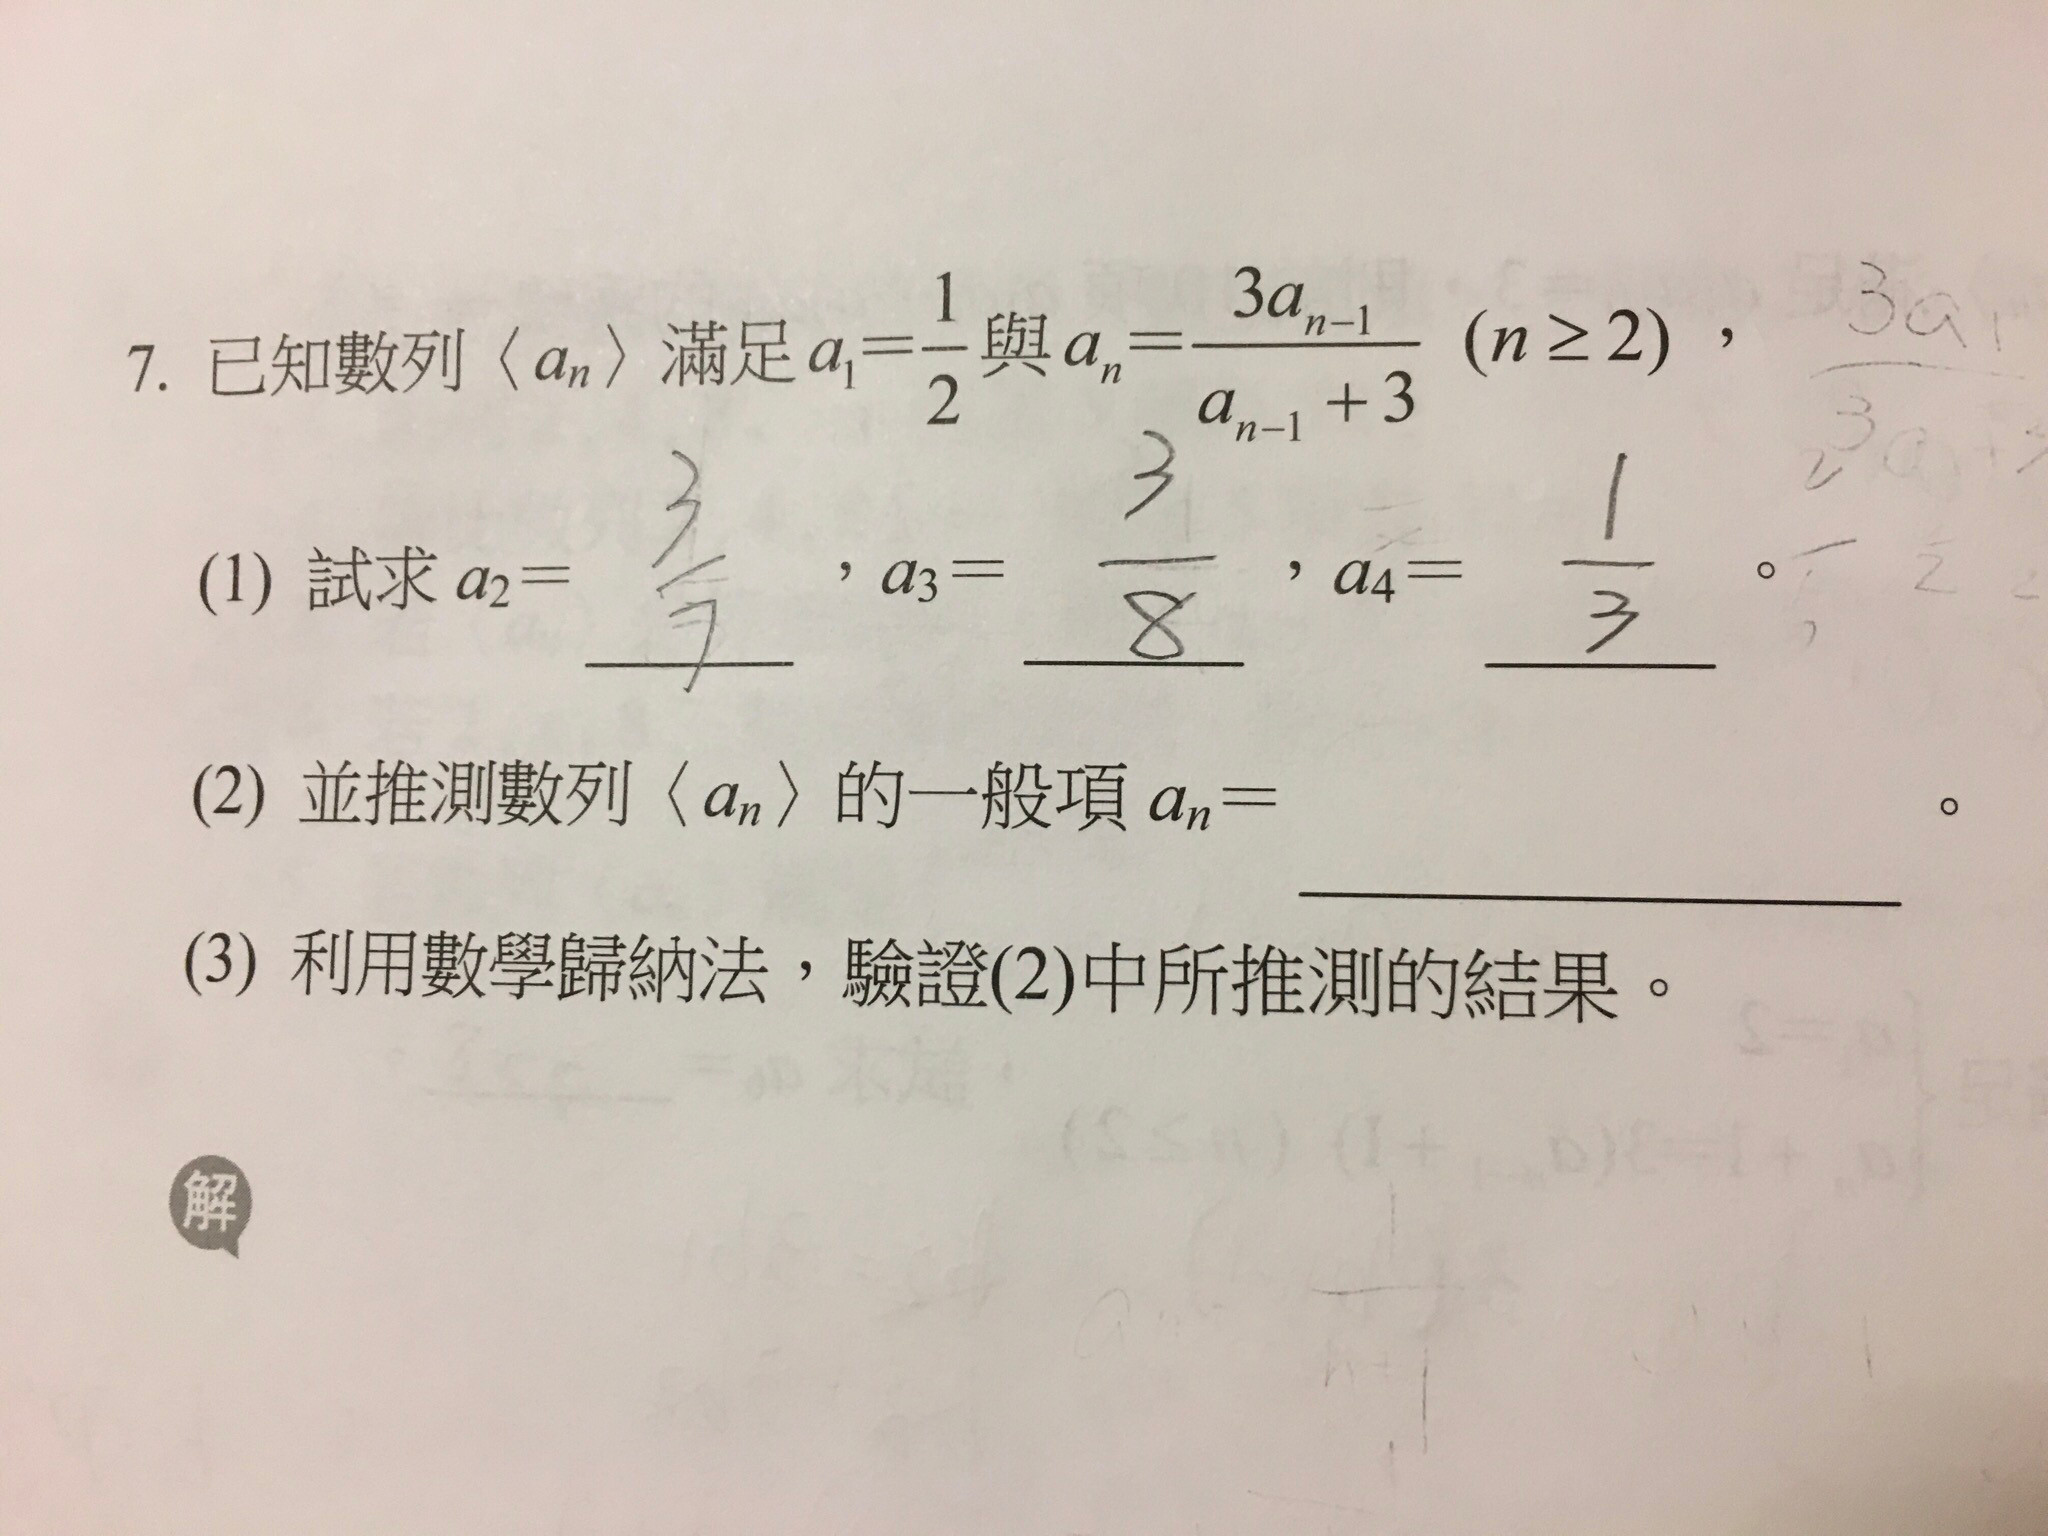 7. 已知數列〈aₙ〉滿足 a₁=1/2 與 aₙ=3aₙ₋₁/(aₙ₋₁+3) (n≥2)，
3a₁
(1) 試求 a₂= 3/7 ，a₃= 3/8 ，a₄= 1/3 。
(2) 並推測數列〈aₙ〉的一般項 aₙ= 。
(3) 利用數學歸納法，驗證(2)中所推測的結果。
解